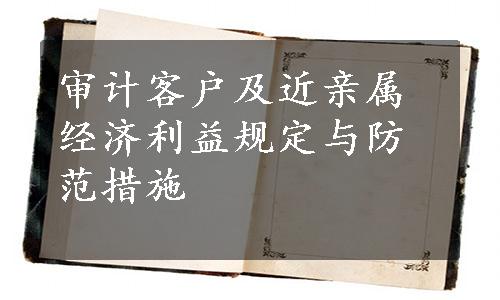 审计客户及近亲属
经济利益规定与防
范措施